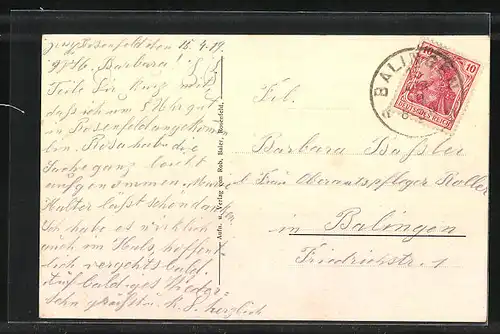 Rosenfeld den 18.4.19.
Barbara!
Teile Dir kurz mit
daß ich um 8 Uhr gut
in Rosenfeld angekom-
men. Rosa habe die
Sache ganz leicht
aufgenommen.
Mutter läßt schön danken
Ich habe es wirklich
auch im hoffent-
lich vergehts bald.
Auf baldiges Wieder-
sehn grüßt herzlich
Aufn. u. Verlag von Rob. Baier, Rosenfeld.
BALINGEN
10
DEUTSCHES REICH
Frl.
Barbara Haßler
Frau Oberamtspfleger Koller
in Balingen
Friedrichstr. 1